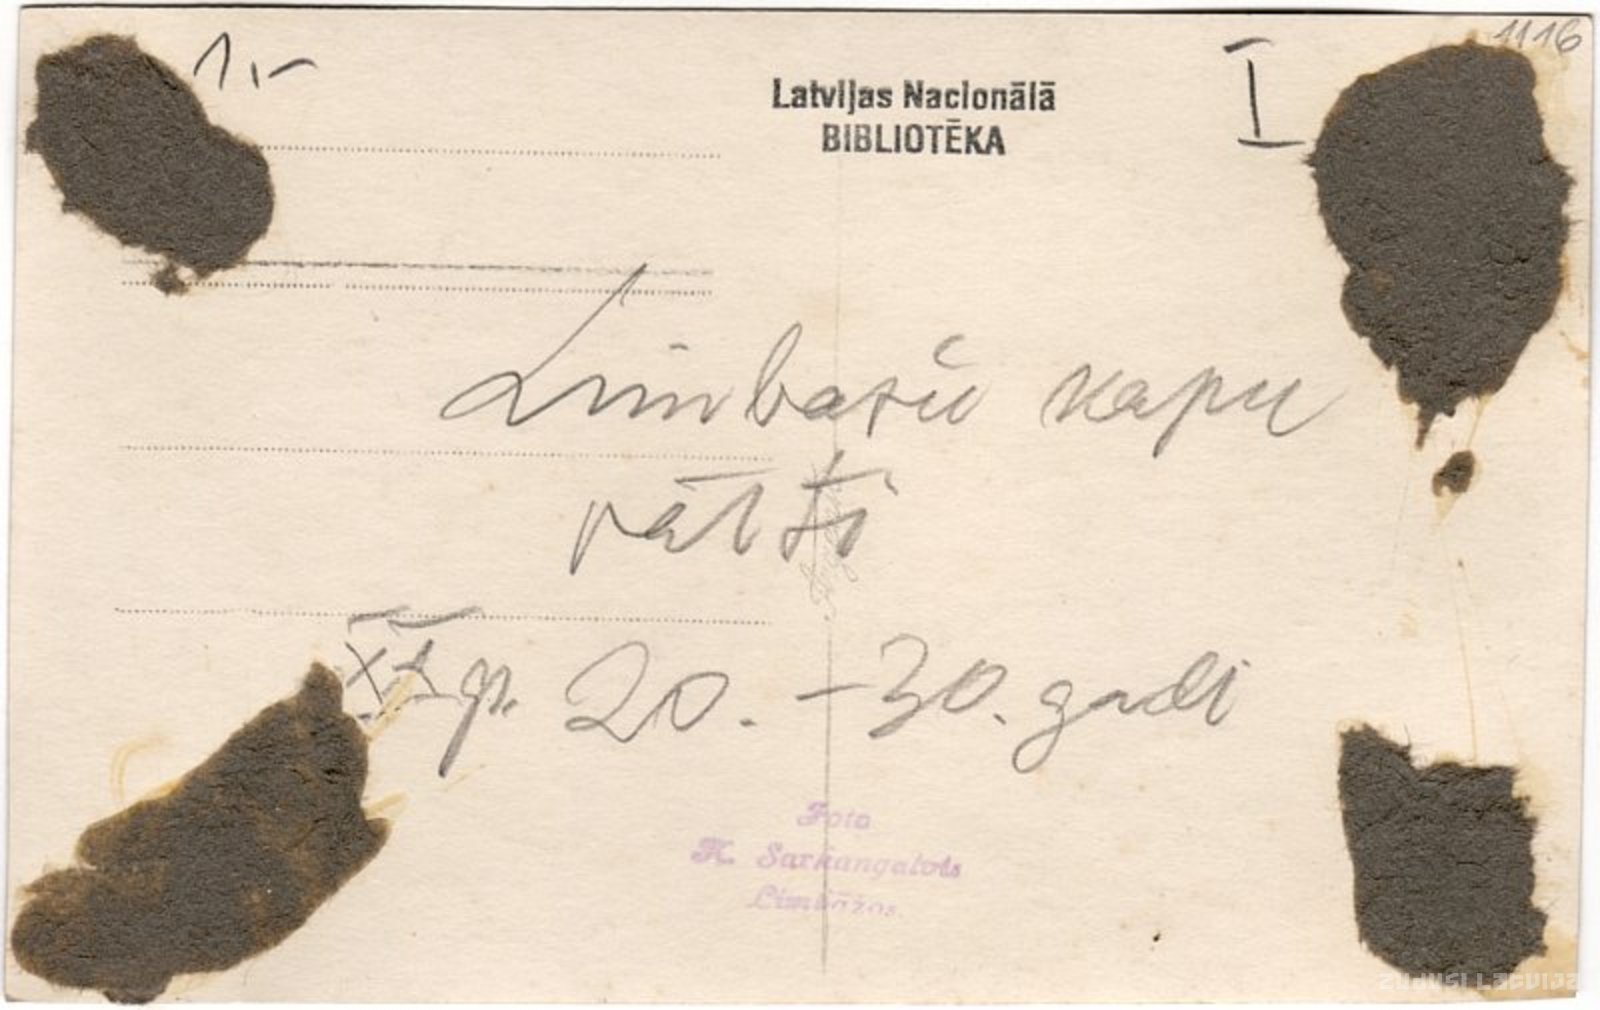 1.-
1116
Latvijas Nacionālā
BIBLIOTĒKA
I
Limbažu kapu
vārti
XX gs. 20. - 30. gadi
Foto
Limbažos.
ZUDUSI LATVIJA